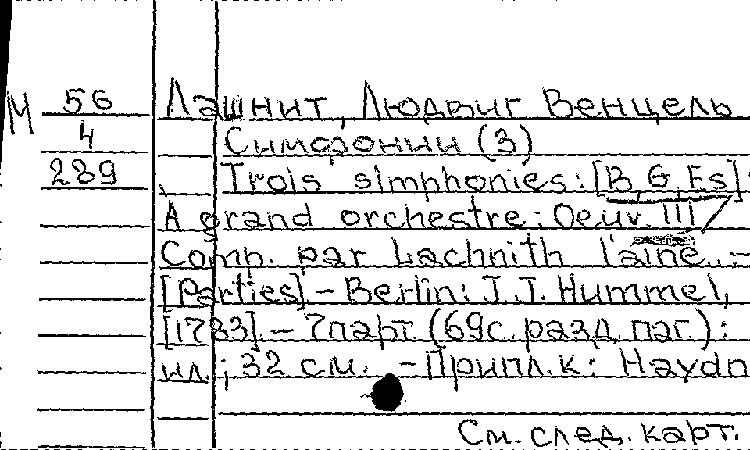 М 56 Лашнит, Людвиг Венцель
4 Симфонии (3)
289 Trois simphonies: [B, G, Es]:
A grand orchestre: Oeuv. III /
Comp. par Lachnith l'aine. –
[Parties]. – Berlin: J. J. Hummel,
[1783]. – 7 парт. (69 с. разд. паг.):
ил.; 32 см. – Припл. к: Haydn
См. след. карт.